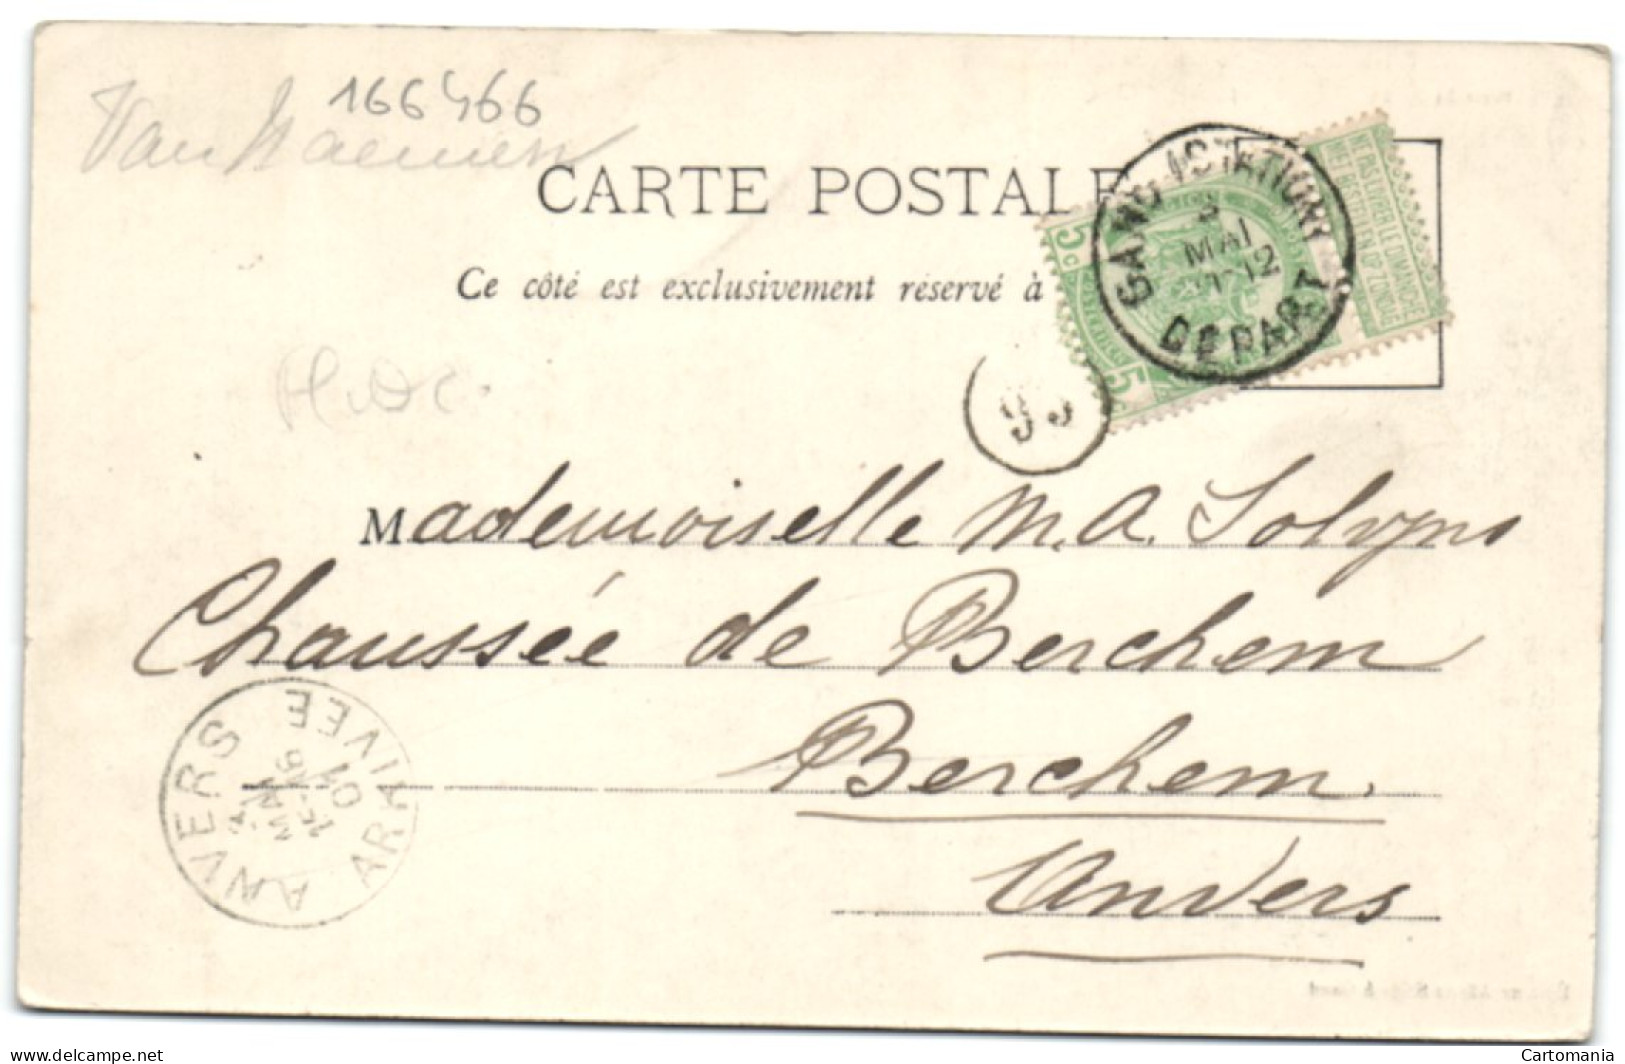 166466
CARTE POSTALE
Ce côté est exclusivement réservé à
GAND (STATION)
MAI
DEPART
5c
5c
NE PAS LIVRER LE DIMANCHE
NIET BESTELLEN OP ZONDAG
Mademoiselle M. A. Solvyns
Chaussée de Berchem
Berchem.
Anvers
ANVERS
MAI
15-16
01
ARRIVEE
www.delcampe.net
Cartomania